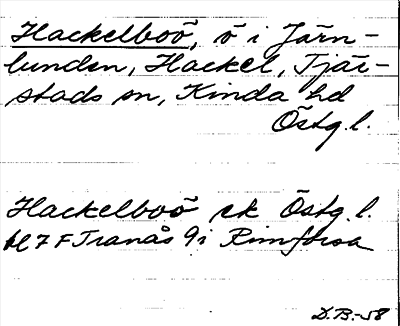 Hackelboö, ö i Järn-
lunden, Hackel, Tjär-
stads sn, Kinda hd
Östg.l.
Hackelboö ek Östg.l.
bl 7 F Tranås 9i Rimforsa
D.B.-58